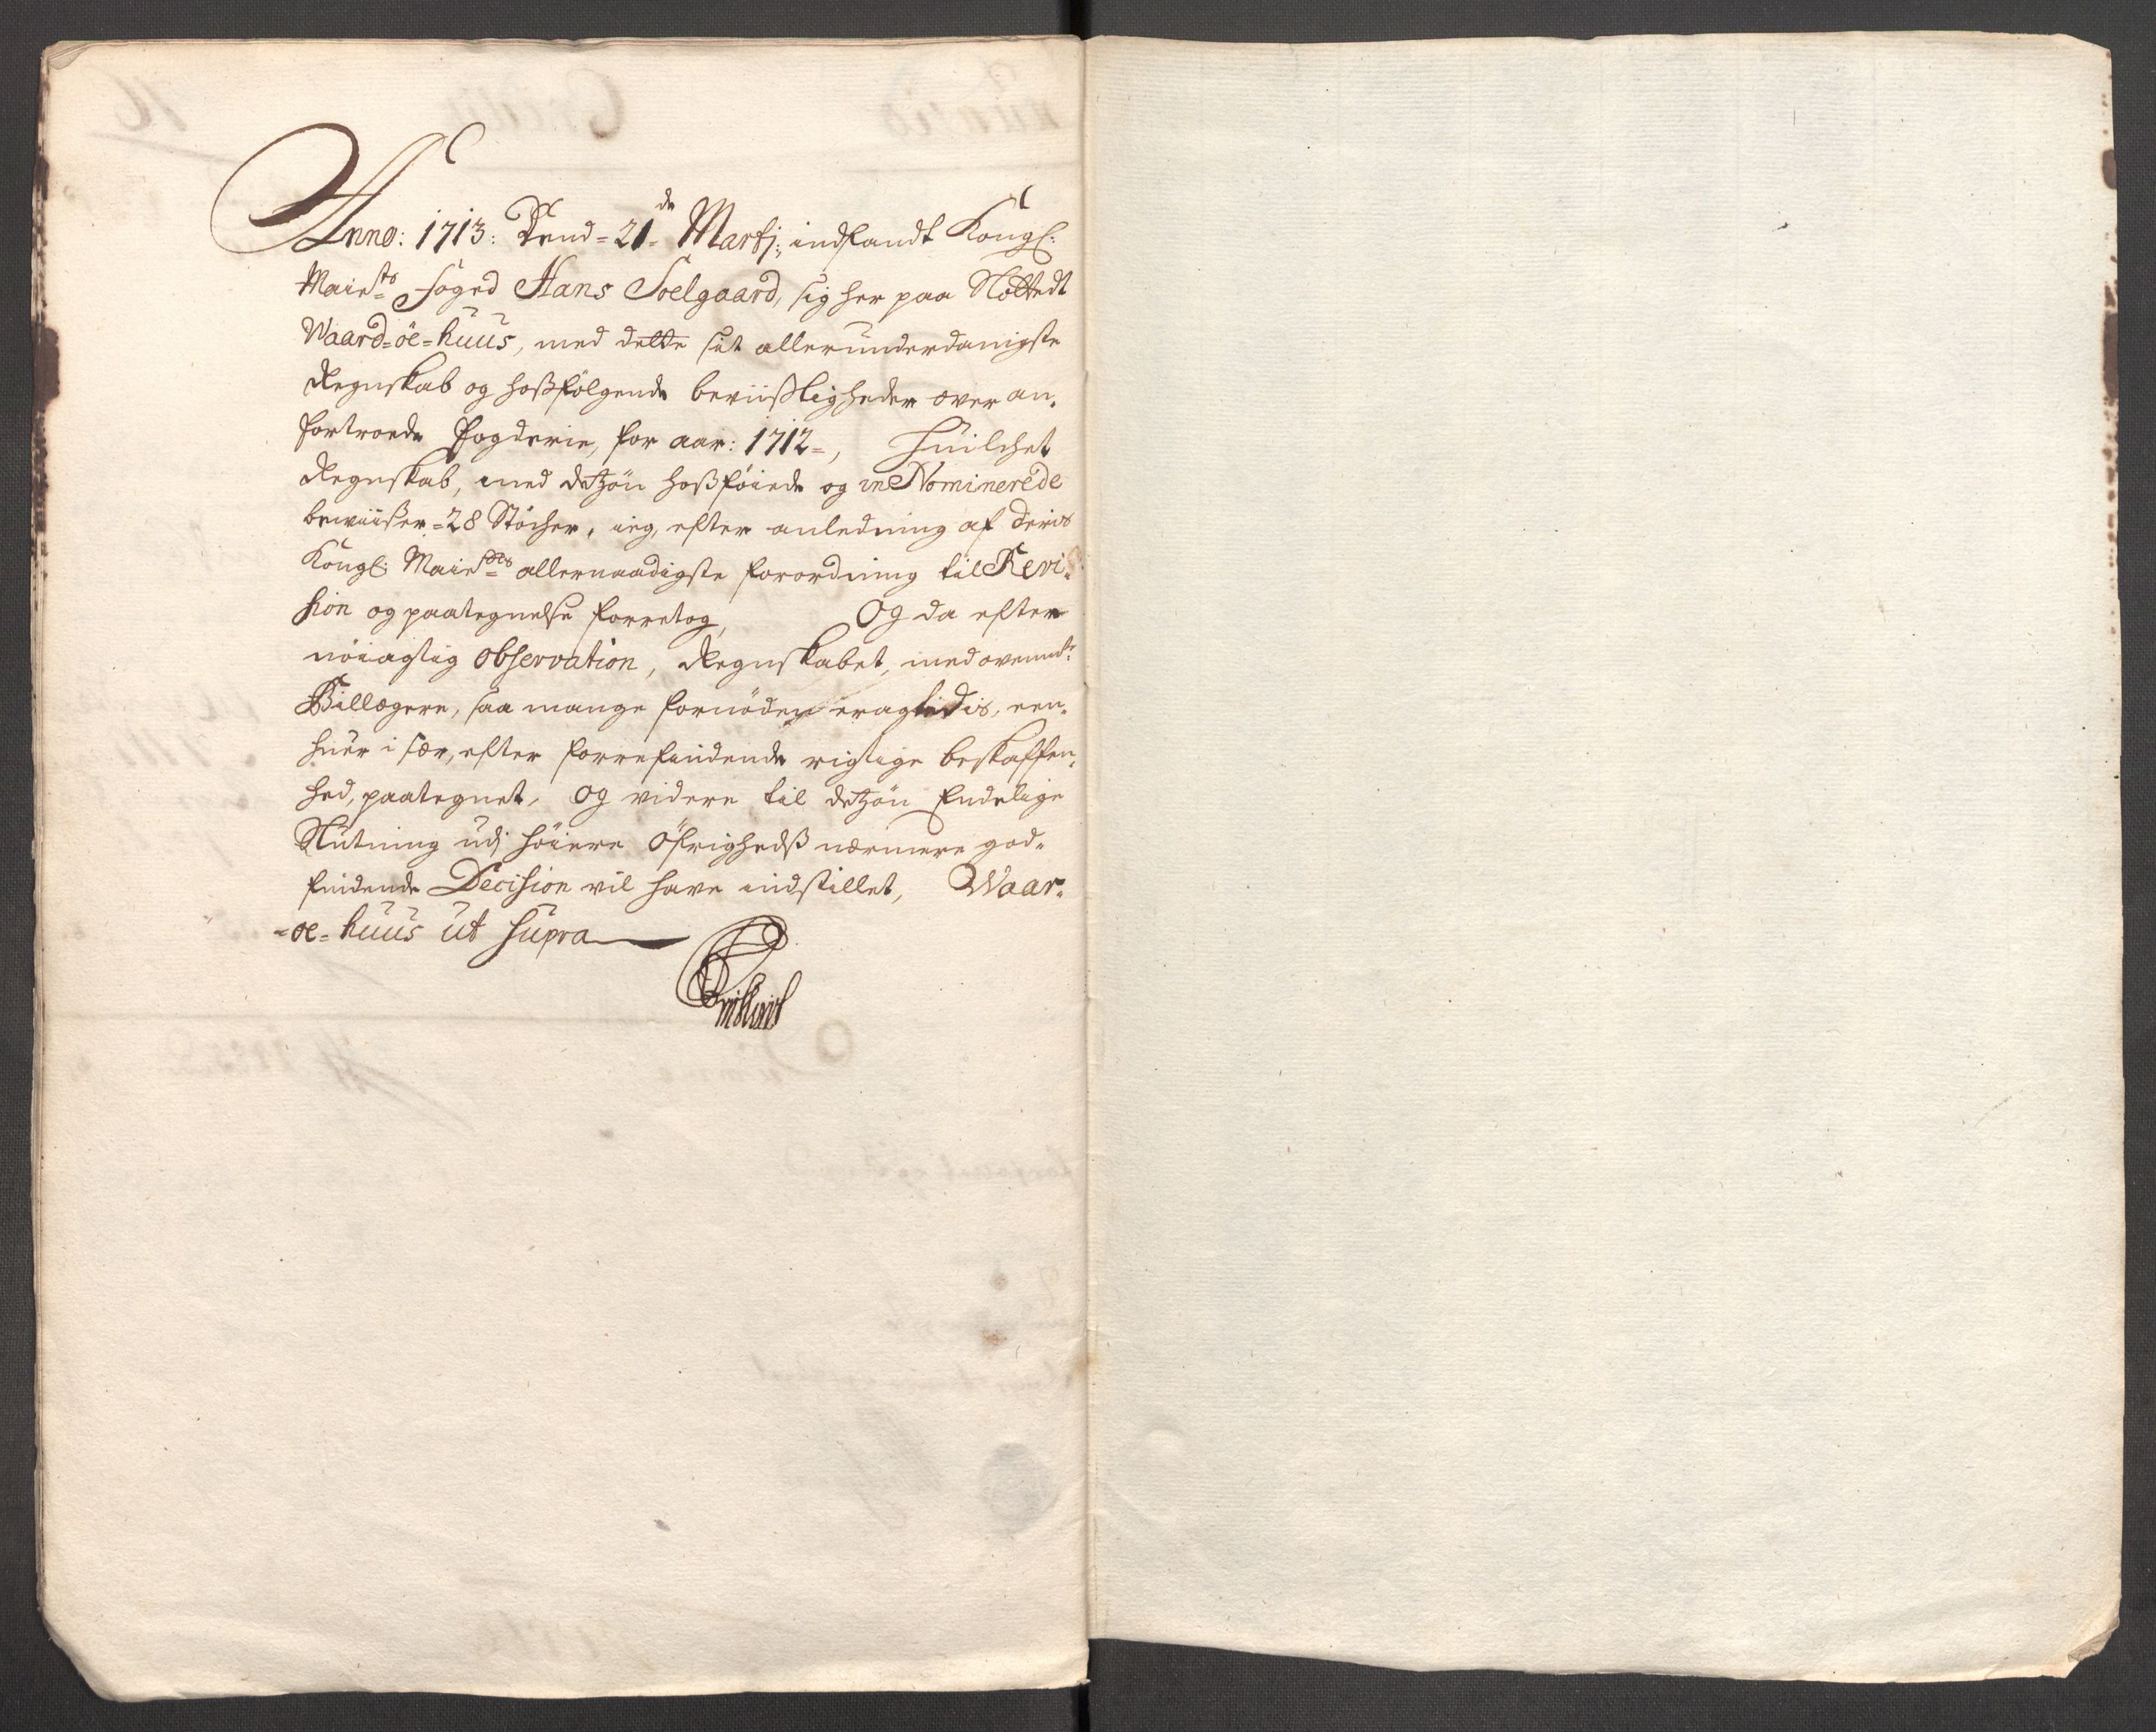 Anno: 1713: Dend=21de Martj: indfandt Kongl:
Maiests foged Hans Soelgaard, sig her paa Slottedt
Waard=øe=huus, med dette sit allerunderdanigste
Regnskab og hosfølgende beviisligheder over an-
fortroede fogderie, for aar: 1712=, Huilchet
Regnskab, med detzøn hosføiede og in Nominerede
beviißer=28 Støcher, ieg, efter anledning af deris
Kongl: Maiests allernaadigste forordning til Revi-
sion og paategnelse forretog, Og da efter
nøiagtig observation, Regnskabet, med ovennte
Billagere, saa mange fornøden eragtedis, een-
huer i sær, efter forrefindende rigtige beskaffen-
hed, paategnet, og videre til detzøn Endelige
Slutning udj høiere Øfrigheds nærmere god-
findende Decision vil have indstillet, Waar-
=øe=huus ut supra